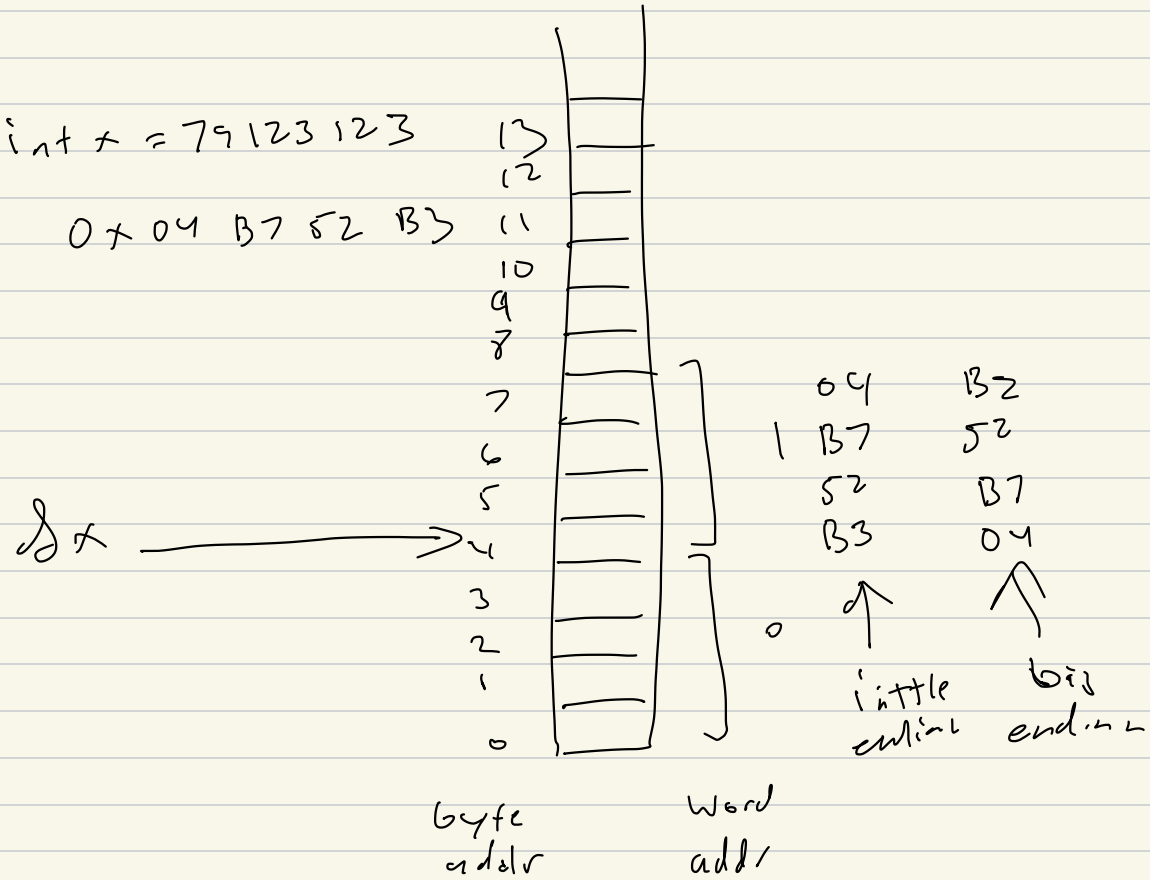 int x = 79123123
0x 04 B7 52 B3
13
12
11
10
9
8
7
6
5
4
3
2
1
0
&x
1
0
04 B2
B7 52
52 B7
B3 04
little endian
big endian
byte addr
word addr